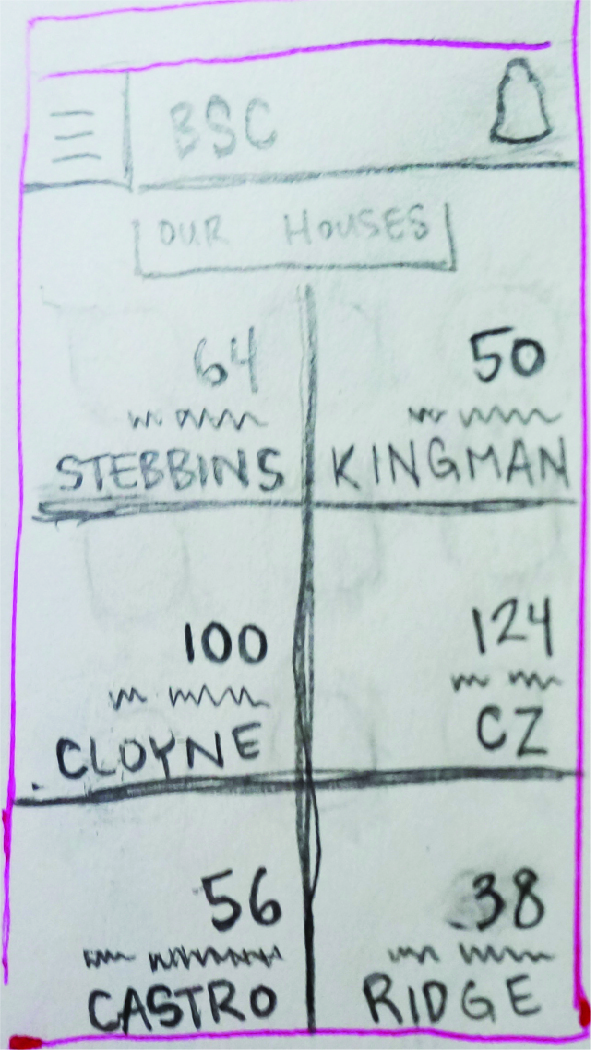 BSC
OUR HOUSES
64
STEBBINS
50
KINGMAN
100
CLOYNE
124
CZ
56
CASTRO
38
RIDGE